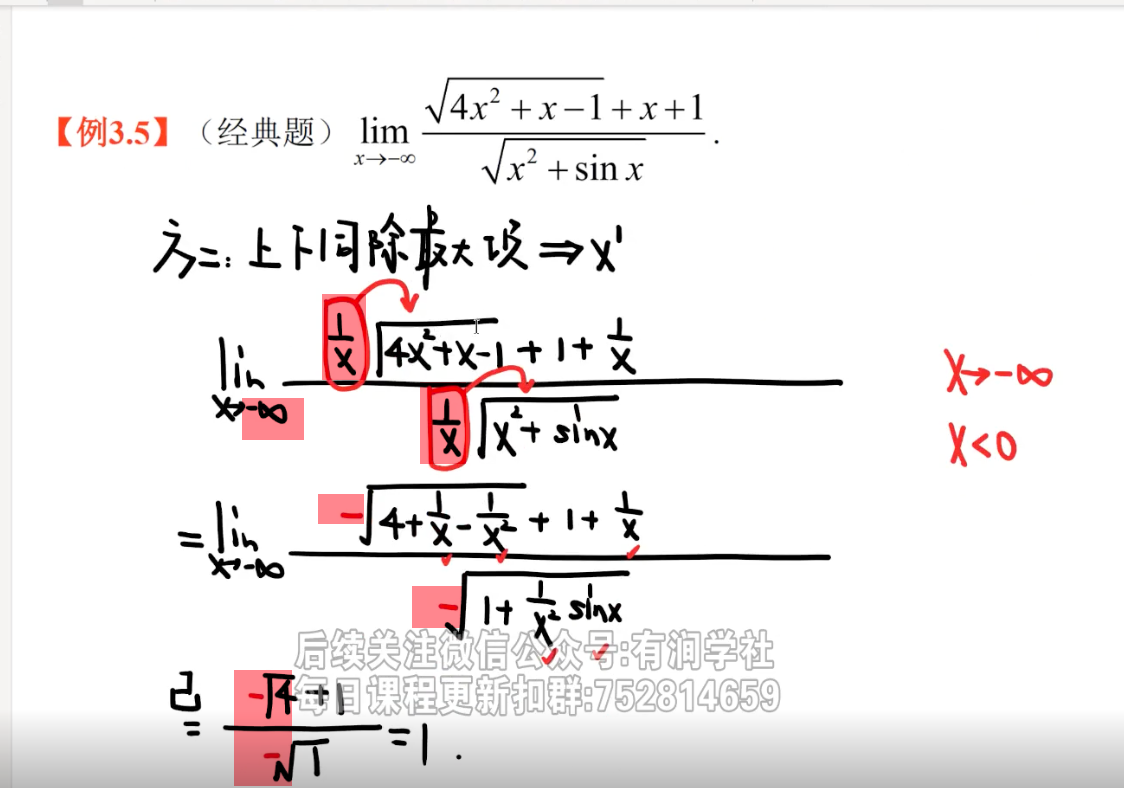 【例3.5】（经典题） lim x→-∞ (√(4x² + x - 1) + x + 1) / √(x² + sin x) .
方二：上下同除最大项 ⇒ x¹
lim x→-∞ (1/x √(4x²+x-1) + 1 + 1/x) / (1/x √(x²+sinx))
x→-∞
x<0
= lim x→-∞ (-√(4+1/x-1/x²) + 1 + 1/x) / (-√(1+1/x² sinx))
后续关注微信公众号:有润学社
每日课程更新扣群:752814659
(-√4+1) / (-√1) = 1 .